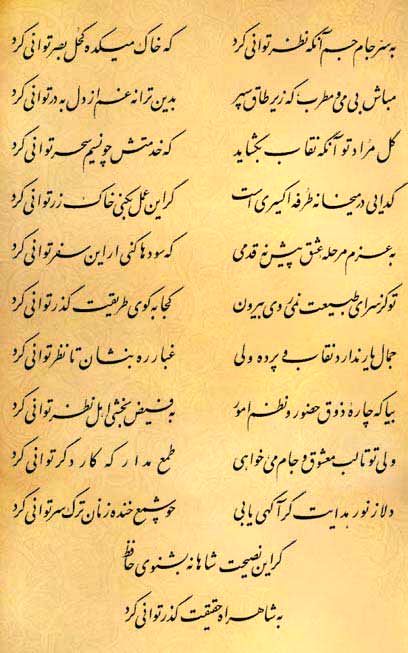 به سر جام جم آنگه نظر توانی کرد که خاک میکده کحل بصر توانی کرد
مباش بی می و مطرب که زیر طاق سپهر بدین ترانه غم از دل به در توانی کرد
گل مراد تو آنگه نقاب بگشاید که خدمتش چو نسیم سحر توانی کرد
گدایی در میخانه طرفه اکسیری است گر این عمل بکنی خاک زر توانی کرد
به عزم مرحله عشق پیش نه قدمی که سودها کنی ار این سفر توانی کرد
تو کز سرای طبیعت نمی‌روی بیرون کجا به کوی طریقت گذر توانی کرد
جمال یار ندارد نقاب و پرده ولی غبار ره بنشان تا نظر توانی کرد
بیا که چاره ذوق حضور و نظم امور به فیض بخشی اهل نظر توانی کرد
ولی تو تا لب معشوق و جام می خواهی طمع مدار که کار دگر توانی کرد
دلا ز نور هدایت گر آگهی یابی چو شمع خنده زنان ترک سر توانی کرد
گر این نصیحت شاهانه بشنوی حافظ
به شاهراه حقیقت گذر توانی کرد